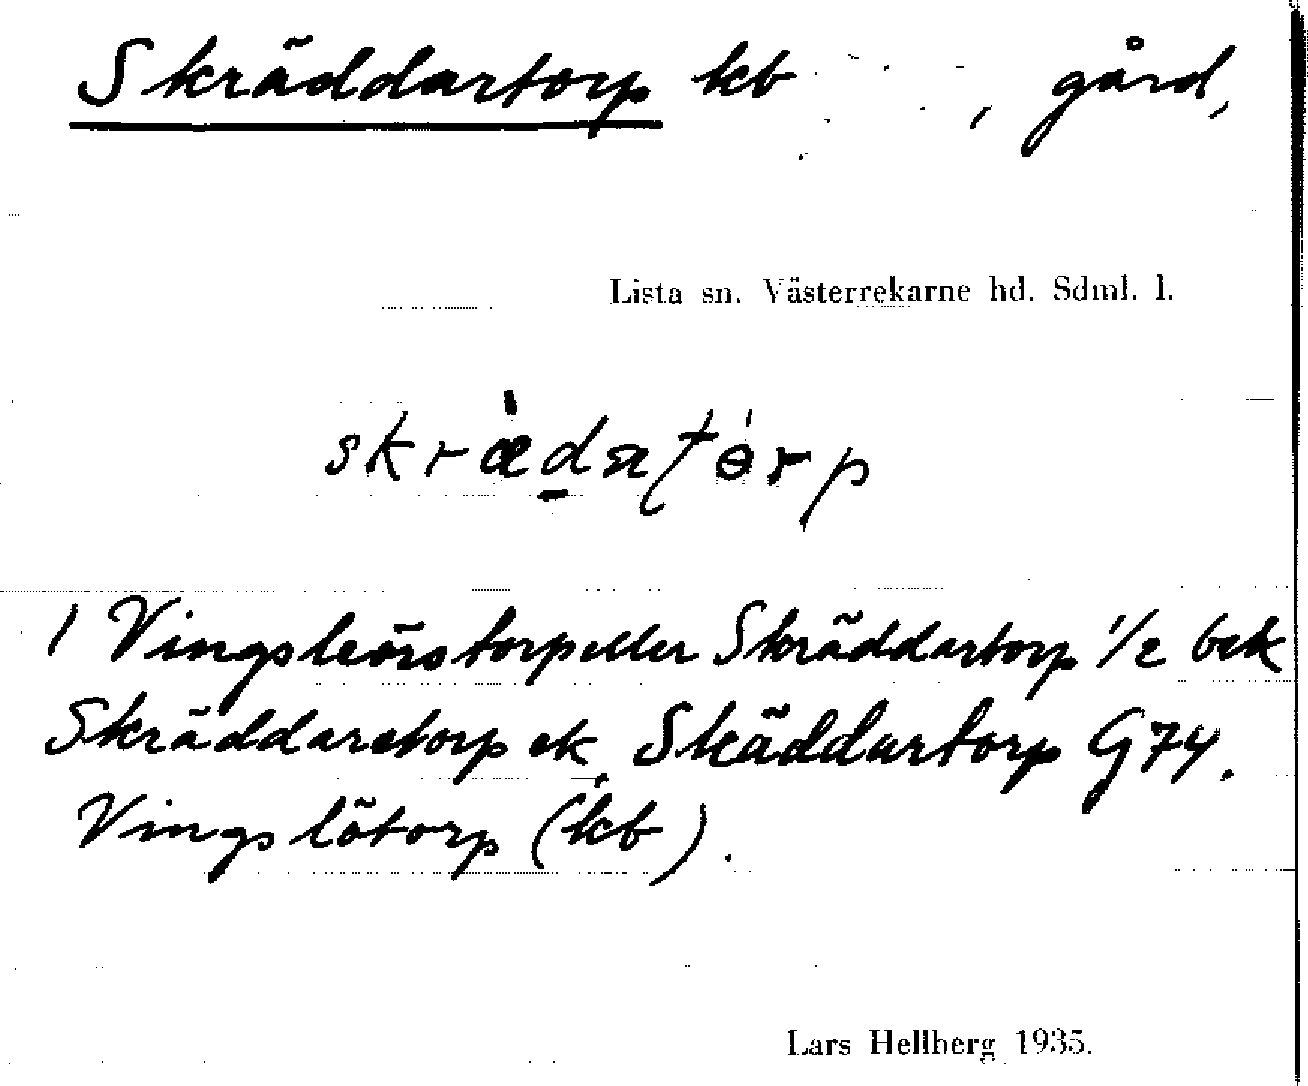 Skräddartorp kb , gård,
Lista sn. Västerrekarne hd. Sdml. l.
skrædatorp
1 Vingsleörstorp eller Skräddartorp 1/2 bek
Skräddaretorp ek, Skäddartorp G74.
Vingslötorp (kb).
Lars Hellberg 1935.